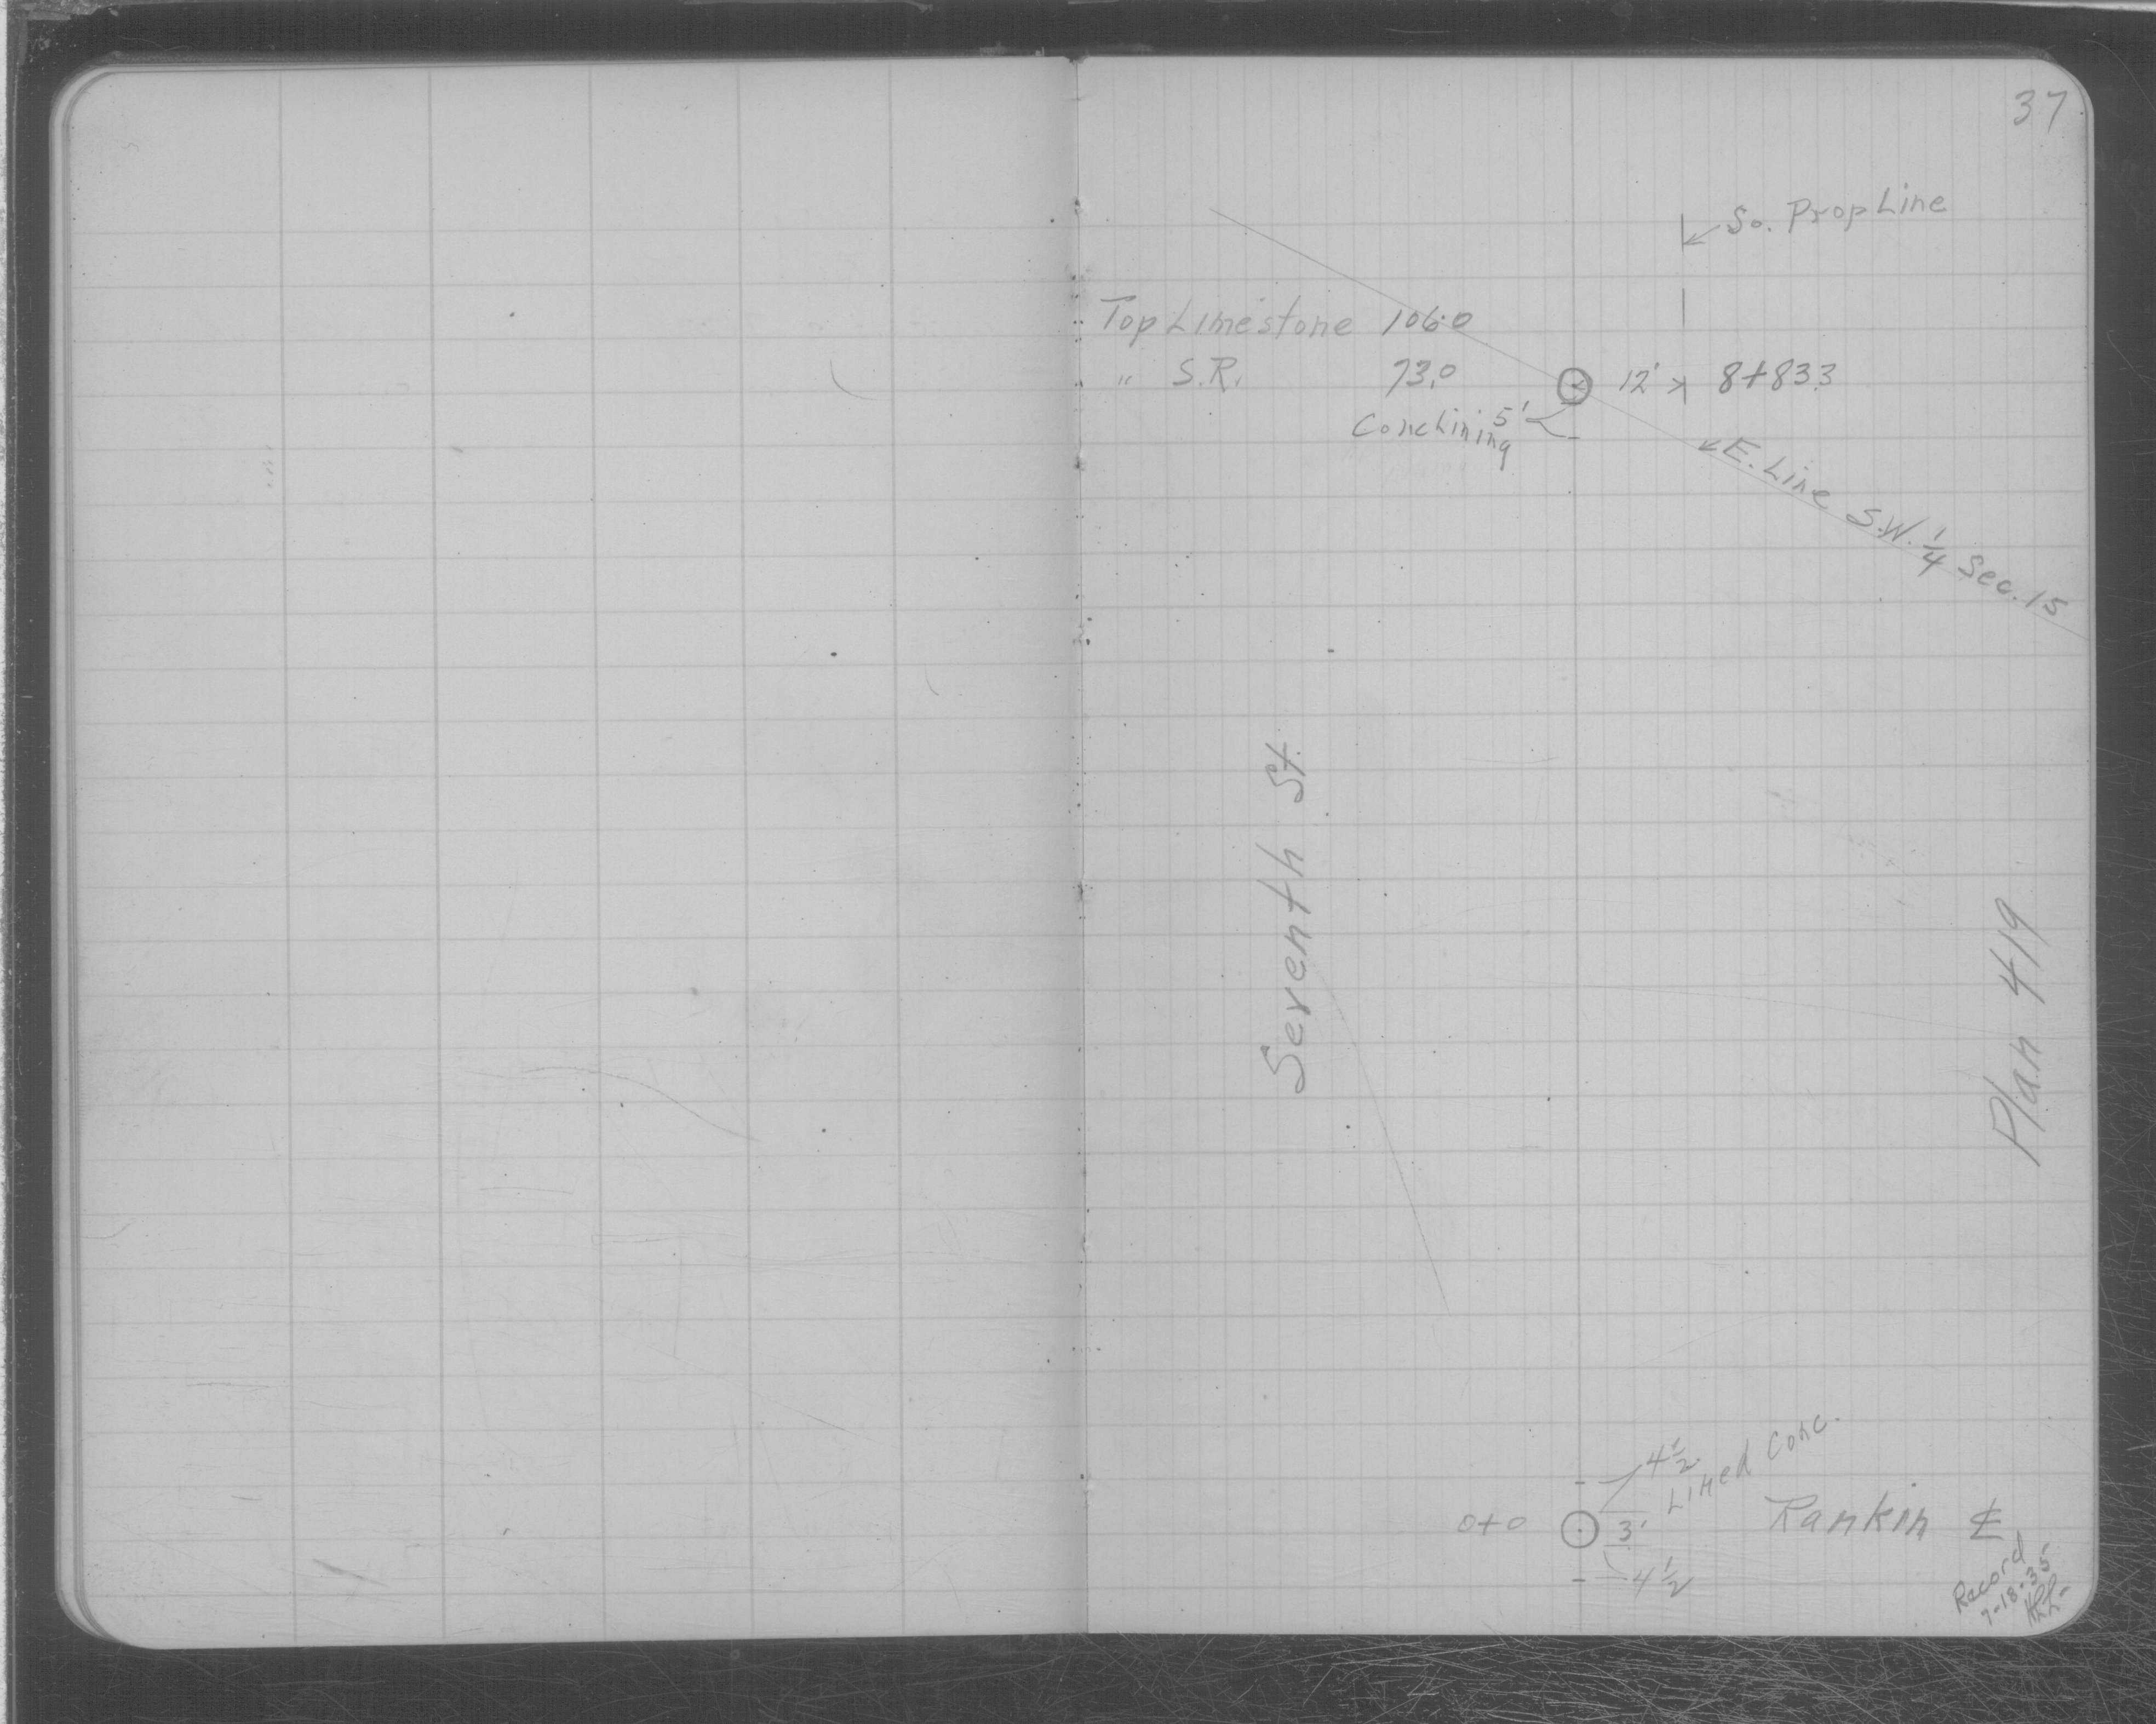 37
So. Prop Line
Top Limestone 106.0
" S.R. 73.0
12' 8+833
5'
Conc Lining
E. Line S.W. 1/4 Sec. 15
Seventh St.
Plan 419
4 1/2
Lined Conc.
0+0 3' Rankin ℄
4 1/2
Record
7-18-35